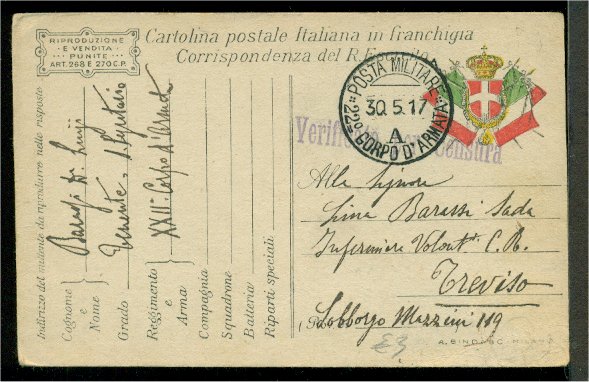 RIPRODUZIONE
E VENDITA
PUNITE
ART. 268 E 270 C.P.
Cartolina postale Italiana in franchigia
Corrispondenza del R. Esercito
POSTA MILITARE
30.5.17
A
22º CORPO D'ARMATA
Verificato Censura
Indirizzo del mittente da riprodurre nelle risposte
Cognome e Nome
Luigi
Grado
Tenente
Reggimento e Arma
XXIIº Corpo d'Armata
Compagnia
Squadrone
Batteria
Riparti speciali
Alla Signora
Lina Barassi Sada
Infermiera Volont. C. R.
Treviso
Mazzini 119
£3
A. BINDA & C. MILANO